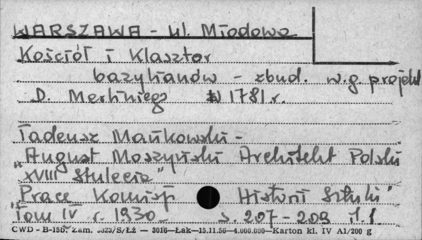 WARSZAWA - ul. Miodowa
Kościół i Klasztor
bazylianów - zbud. w.g. projekt
D. Merliniego w 1781 r.
Tadeusz Mańkowski -
"August Moszyński Architekt Polski
XVIII Stulecia"
"Prace Komisji Historii Sztuki"
Tom IV r. 1930. s. 207-209 il. 1.
CWD - B-156. Zam. Sł/Łż — 3016—Łak—15.11.56—4.000.000—Karton kl. IV A1/200 g